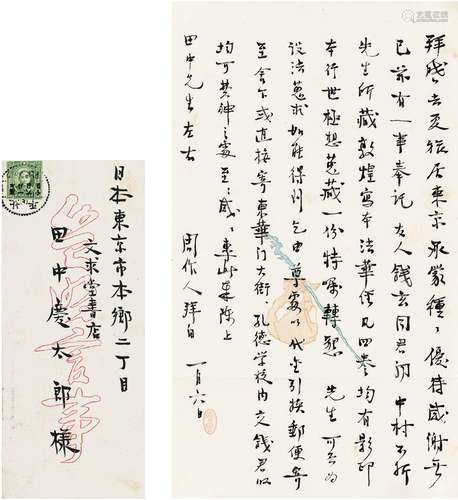 拜啓去夏旅居東京承蒙種〻優待感謝無
已茲有一事奉託友人錢玄同君聞中村不折
先生所藏敦煌寫本法華經凡四卷均有影印
本行世極想蒐藏一份特囑轉懇 先生可否為
設法蒐求如能得乞由尊處以代金引換郵便寄
至舍下或直接寄東華門大街孔德學校內交錢君收
均可費神之處至〻感〻專此奉陳上
田中先生左右
周作人拜白 一月六日
日本東京市本鄉二丁目
文求堂書店
田中慶太郎樣